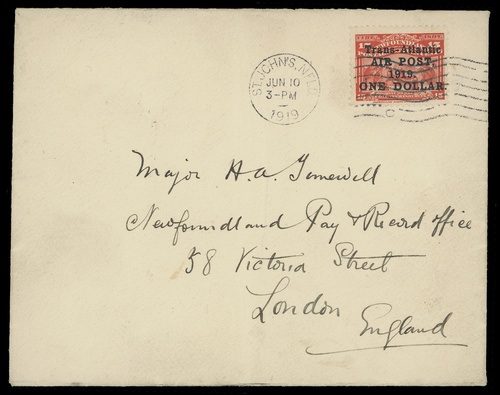 Trans-Atlantic
AIR POST,
1919.
ONE DOLLAR.
ST. JOHN'S, NFLD
JUN 10
3-PM
1919
Major H. A. Timewell
Newfoundland Pay & Record office
58 Victoria Street
London
England